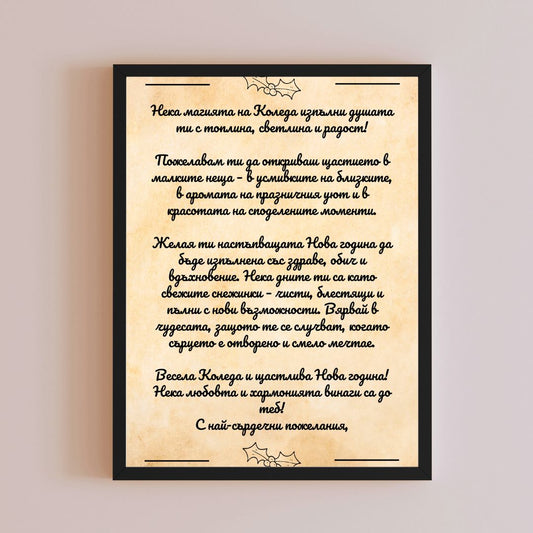 Нека магията на Коледа изпълни душата
ти с топлина, светлина и радост!
Пожелавам ти да откриваш щастието в
малките неща – в усмивките на близките,
в аромата на празничния уют и в
красотата на споделените моменти.
Желая ти настъпващата Нова година да
бъде изпълнена със здраве, обич и
вдъхновение. Нека дните ти са като
свежите снежинки – чисти, блестящи и
пълни с нови възможности. Вярвай в
чудесата, защото те се случват, когато
сърцето е отворено и смело мечтае.
Весела Коледа и щастлива Нова година!
Нека любовта и хармонията винаги са до
теб!
С най-сърдечни пожелания,